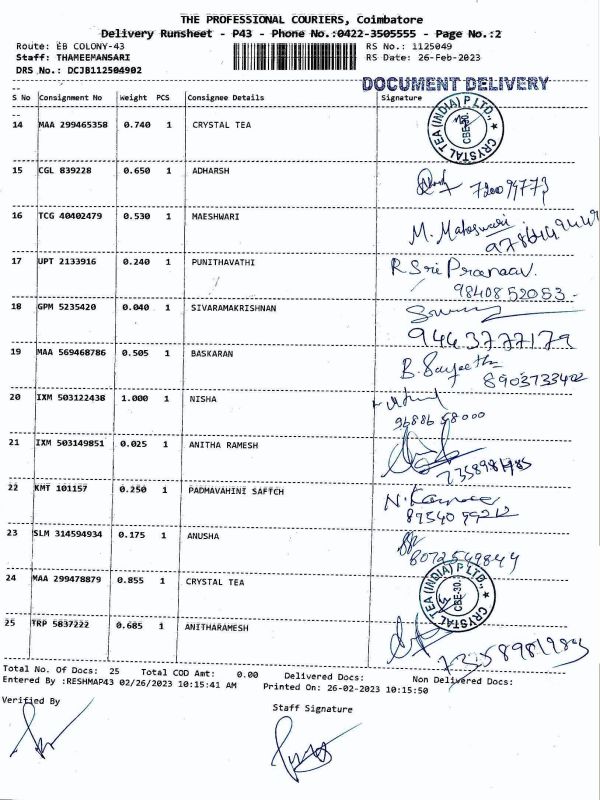 THE PROFESSIONAL COURIERS, Coimbatore
Delivery Runsheet - P43 - Phone No.:0422-3505555 - Page No.:2
Route: EB COLONY-43 RS No.: 1125049
Staff: THAMEEMANSARI RS Date: 26-Feb-2023
DRS No.: DCJB112504902
DOCUMENT DELIVERY
S No Consignment No Weight PCS Consignee Details Signature
14 MAA 299465358 0.740 1 CRYSTAL TEA
CRYSTAL TEA (INDIA) P LTD., CBE-30.
15 CGL 839228 0.650 1 ADHARSH
16 TCG 40402479 0.530 1 MAESHWARI
M.
17 UPT 2133916 0.240 1 PUNITHAVATHI R Sri Pranaav.
9840852053
18 GPM 5235420 0.040 1 SIVARAMAKRISHNAN
9443777179
19 MAA 569468786 0.505 1 BASKARAN B.
8903733402
20 IXM 503122438 1.000 1 NISHA
21 IXM 503149851 0.025 1 ANITHA RAMESH
22 KMT 101157 0.250 1 PADMAVAHINI SAFTCH N.
23 SLM 314594934 0.175 1 ANUSHA
8072549844
24 MAA 299478879 0.855 1 CRYSTAL TEA
CRYSTAL TEA (INDIA) P LTD., CBE-30.
25 TRP 5837222 0.685 1 ANITHARAMESH
Total No. Of Docs: 25 Total COD Amt: 0.00 Delivered Docs: Non Delivered Docs:
Entered By :RESHMAP43 02/26/2023 10:15:41 AM Printed On: 26-02-2023 10:15:50
Verified By
Staff Signature